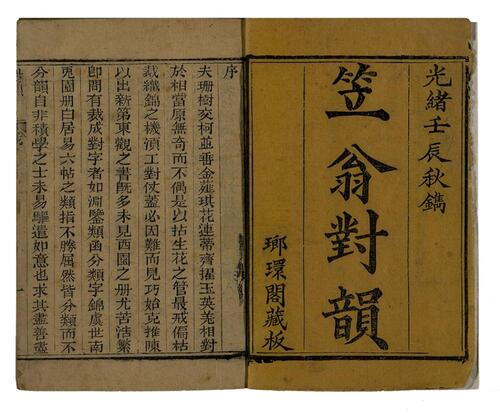 光緒壬辰秋鐫
笠翁對韻
瑯環閣藏板
序
夫珊樹交柯並番金薤琪花連蒂齊擢玉英羌相對
於相當原無奇而不偶是以拈生花之管最戒偏枯
裁織錦之機頂工對仗蓋必因難而見巧始克推陳
以出新第東觀之書既多未見西園之冊尤苦浩繁
即間有裁成對字者如淵鑒類函分類字錦虞世南
兎園册白居易六帖之類指不勝屈然皆分類而不
分韻自非積學之士未易驅遣如意也求其盡善盡